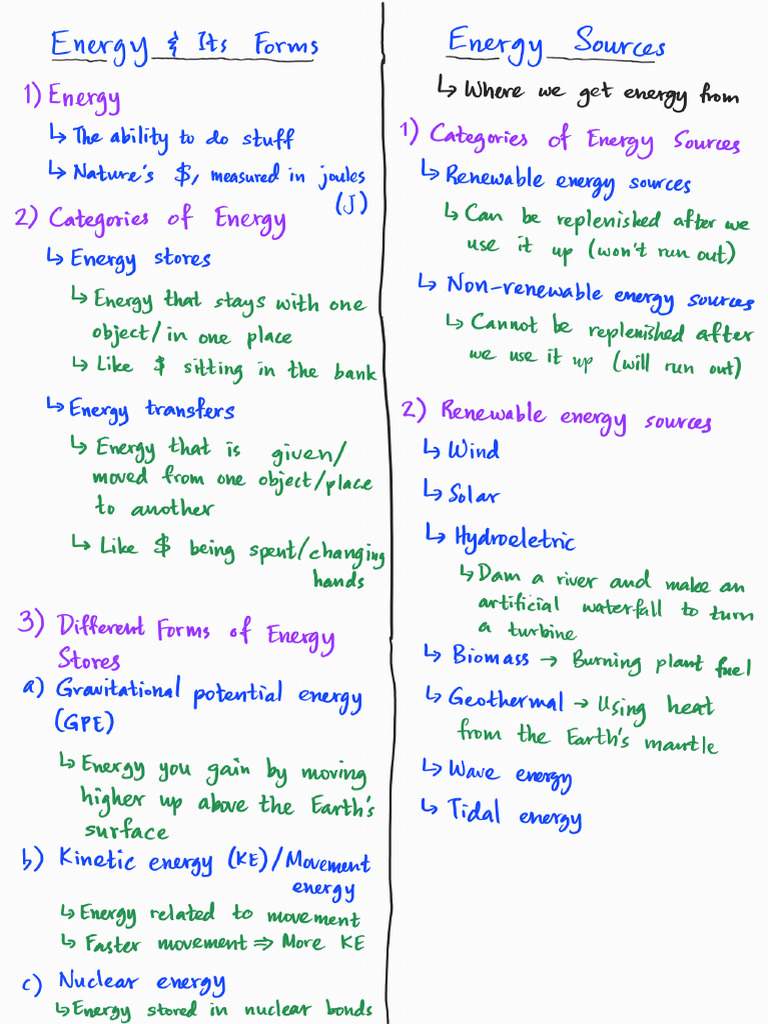 Energy & Its Forms
1) Energy
↳ The ability to do stuff
↳ Nature's $, measured in joules
(J)
2) Categories of Energy
↳ Energy stores
↳ Energy that stays with one
object/in one place
↳ Like $ sitting in the bank
↳ Energy transfers
↳ Energy that is given/
moved from one object/place
to another
↳ Like $ being spent/changing
hands
3) Different Forms of Energy
Stores
a) Gravitational potential energy
(GPE)
↳ Energy you gain by moving
higher up above the Earth's
surface
b) Kinetic energy (KE)/Movement
energy
↳ Energy related to movement
↳ Faster movement ⇒ More KE
c) Nuclear energy
↳ Energy stored in nuclear bonds
Energy Sources
↳ Where we get energy from
1) Categories of Energy Sources
↳ Renewable energy sources
↳ Can be replenished after we
use it up (won't run out)
↳ Non-renewable energy sources
↳ Cannot be replenished after
we use it up (will run out)
2) Renewable energy sources
↳ Wind
↳ Solar
↳ Hydroeletric
↳ Dam a river and make an
artificial waterfall to turn
a turbine
↳ Biomass → Burning plant fuel
↳ Geothermal → Using heat
from the Earth's mantle
↳ Wave energy
↳ Tidal energy